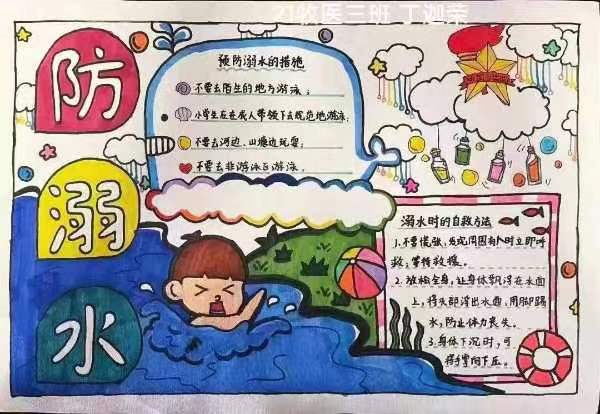 21牧医三班 丁迦荣
防
溺
水
预防溺水的措施
不要去陌生的地方游泳；
小学生应在成人带领下去规范地游泳
不要去河边、山塘边玩耍；
不要去非游泳区游泳.
溺水时的自救方法
1.不要慌张，发现周围有人时立即呼
救；等待救援。
2.放松全身，让身体飘浮在水面
上，将头部浮出水面，用脚踢
水，防止体力丧失。
3.身体下沉时，可
将手掌向下压。